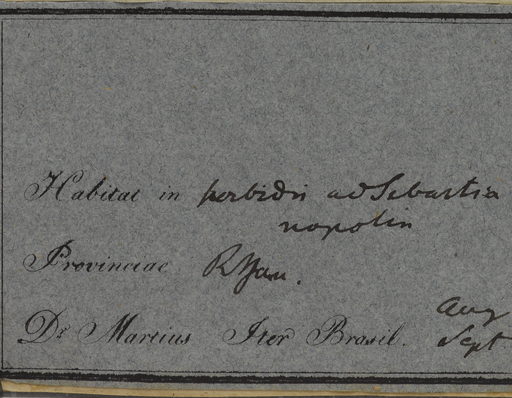 Habitat in herbidis ad Sebastia
nopolin
Provinciae R Jan.
Aug
Dr Martius Iter Brasil. Sept